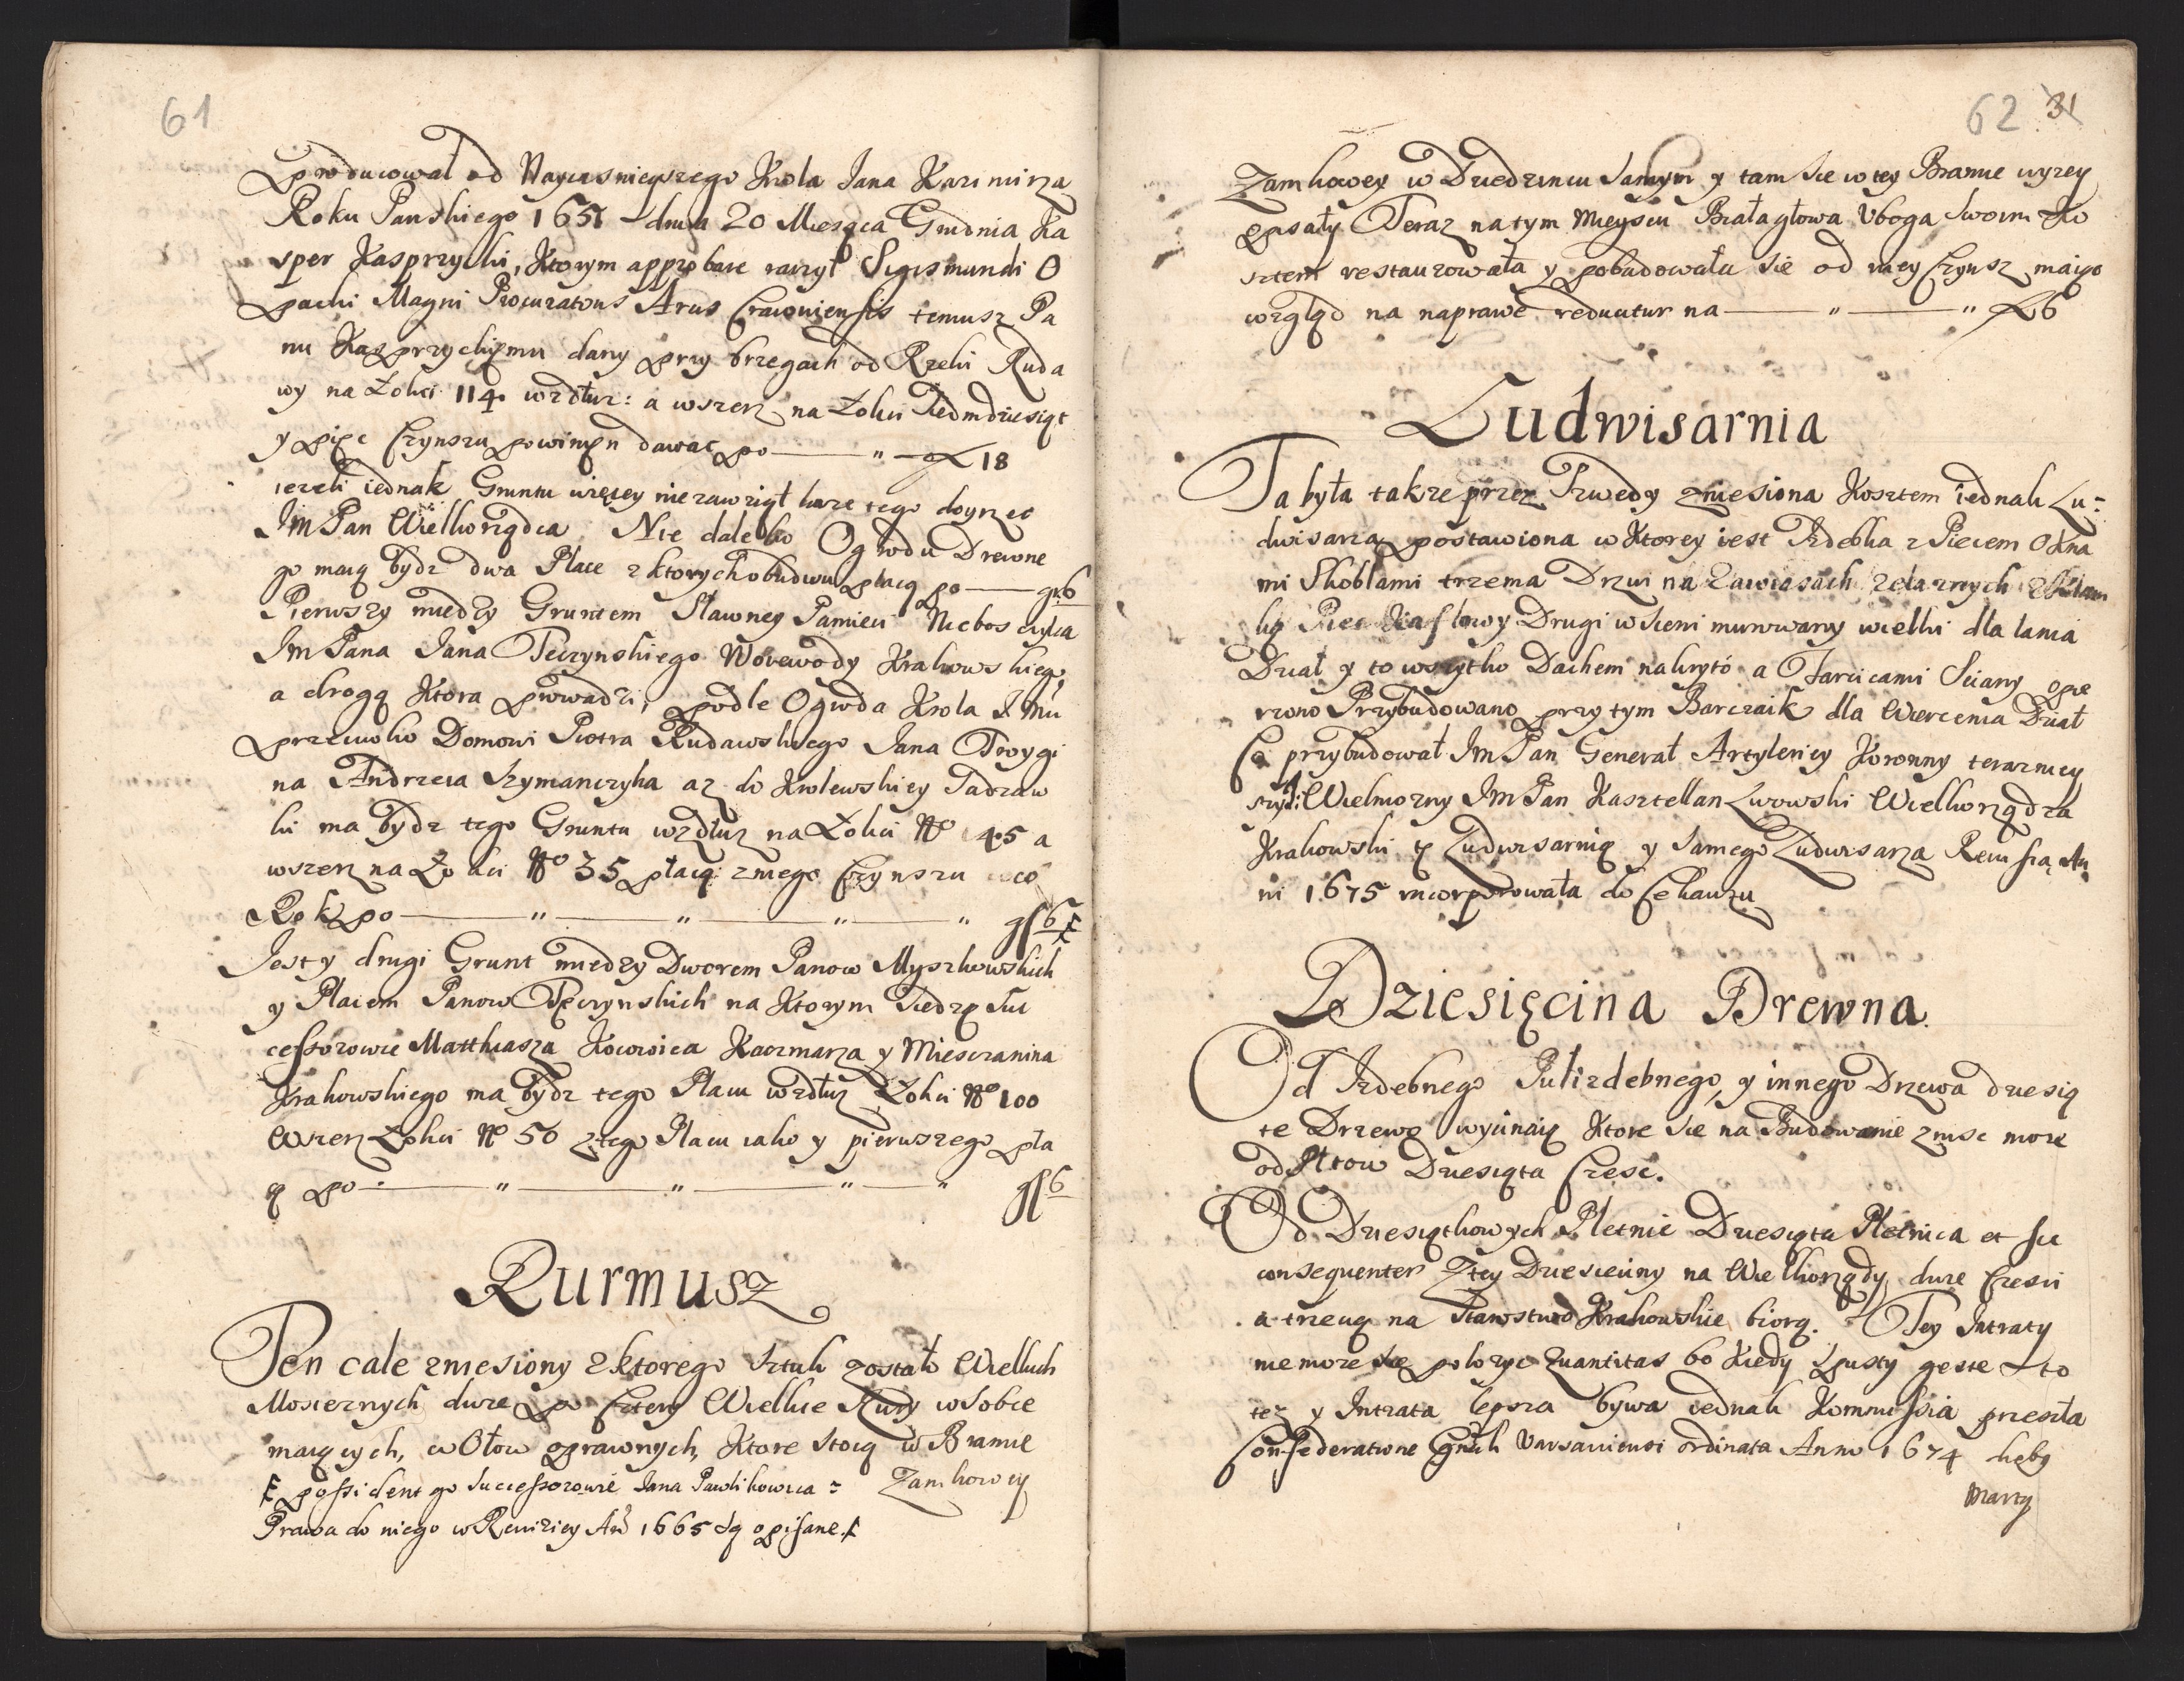 61
produkował od Nayiasnieyszego Krola Jana Kazimirza
Roku Panskiego 1651 dnia 20 Miesąca Grudnia Ka
sper Kasprzycki, Ktorym approbare raczył Sigismundi O
packi Magni Procuratoris Arcis Cracouiensis temusz Pa
nu Kasprzyckiemu dany przy brzegach od Rzeki Ruda
wy na Łokci 114. wzdłuz: a wszerz na Łokci Siedmdziesiąt
y pięc Czynszu powinięn dawac po —— " — 18
iezeli iednak Gruntu więcey nie zawziął kaze tego doyrzec
Jm Pan Wielkorządca. Nie daleko Ogrodu Drewne
go maią bydz dwa Place z ktorych obudwu płacą po —— gr. 6
Pierwszy między Gruntem Sławney Pamieci Nieboszczyka
Jm Pana Jana Teczynskiego Woiewody Krakowskiego,
a drogą Ktora prowadzi, podle Ogroda Krola J Mci
przeciwko Domowi Piotra Rudawskiego Jana Trzygi
na Andrzeia Szymanczyka az do Krolewskiey Sadzaw
ki ma bydz tego Gruntu wzdłuz na Łokci No 45 a
wszerz na Łokci No 35 płacą z niego Czynszu co
Rok po —— " —— " —— " —— " gr 6
Jest y drugi Grunt między Dworem Panow Myszkowskich
y Placem Panow Tęczynskich na Ktorym Siedzą Suc
cessorowie Matthiasza Kocowica Kaczmarza y Miesczanina
Krakowskiego ma bydz tego Placu wzdłuz Łokci No 100
Wszerz Łokci No 50 z tego Placu iako y pierwszego pła
cą po — " —— " —— " —— " gr 6
Rurmusz
Ten cale zniesiony z ktorego Sztuk zostało Wielkich
Mosieznych dwie po Cztery Wielkie Rury w Sobie
maiących, w Ołow oprawnych, Ktore stoią w Bramie
possident go Successorowie Jana Pawlikowica = Zamkowey
Prawa do niego w Rewiziey An 1665 są opisane
62 31
Zamkowey w Dziedzincu Samym y tam Sie w tey Bramie wyzey
pisały Teraz na tym Mieyscu Białagłowa Vboga Swoim Ko
sztem restaurowała y pobudowała Sie od niey Czynsz maiąc
wzgląd na naprawe reducitur na —— " —— " 6
Ludwisarnia
Ta była takze przez Szwedy zniesiona Kosztem iednak Lu=
dwisarza postawiona w Ktorey iest Izdebka z Piecem Okna
mi Skoblami trzema Drzwi na Zawiasach zelaznych z Klam
ką Piec Kaflowy Drugi w Sieni murowany wielki dla lania
Dział y to wszytko Dachem nakryto a Tarcicami Sciany opie
rzono Przybudowano przy tym Barczaik dla Wiercenia Dział
Co przybudował Jm Pan Generał Artyleriey Koronny terazniey
szy: Wielmozny Jm Pan Kasztellan Lwowski Wielkorządza
Krakowski tę Ludwisarnią y Samego Ludwisarza Rewisia An
ni 1675 incorporowała do Cekauzu
Dziesięcina Drewna.
Od Izdebnego Pulizdebnego, y innego Drzewa dziesią
te Drzewo wyimaią Ktore Sie na Budowanie znisc moze
od Płtow Dziesiąta Czesc.
Od Dziesiątkowych Pletnic Dziesiąta Pletnica et sic
consequenter Z tey Dziesieciny na Wielkorządy dwie Czesci
a trzecią na Starostwo Krakowskie biorą. Tey Intraty
nie moze się połozyc Quantitas bo Kiedy Spusty gęste to
tez y Intrata lepsza bywa iednak Kommissia przeszła
Confederatione Gnrli Varsauiensi ordinata Anno 1674 kęby
Marty